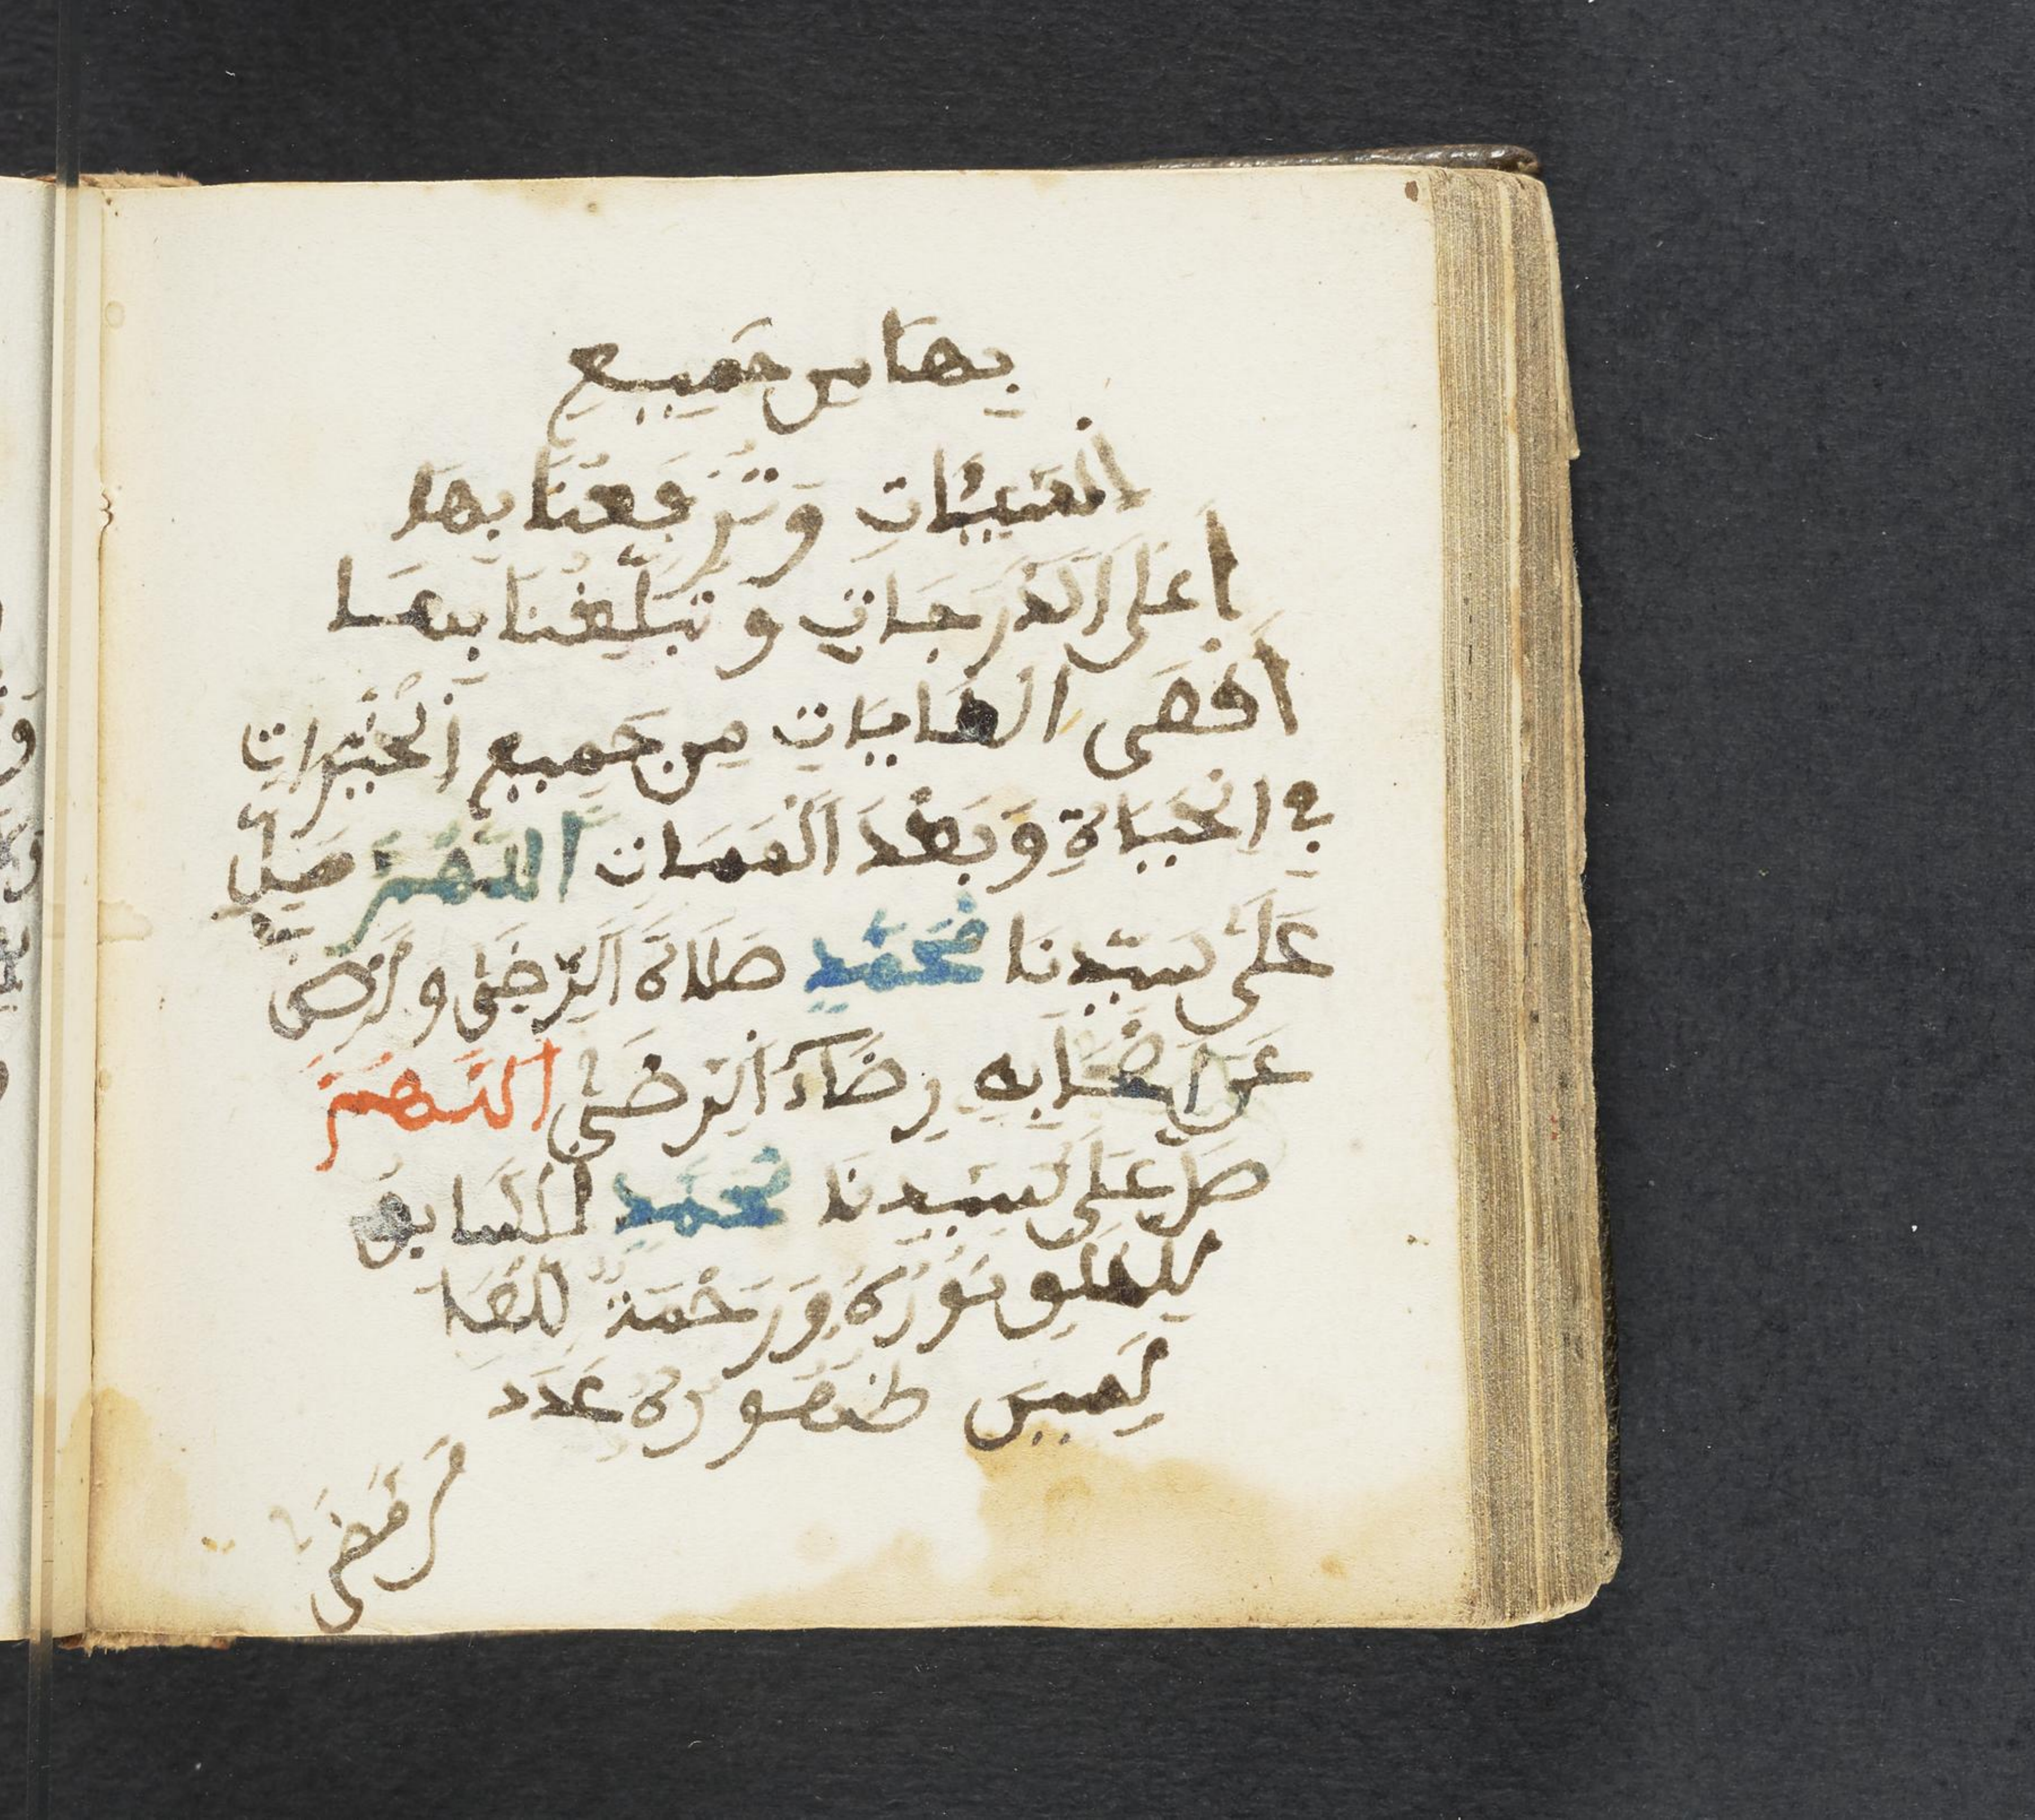 بِهَا مِن جَمِيعِ
السَّيِّئَاتِ وَتَرْفَعُنَا بِهَا
أَعْلَى الدَّرَجَاتِ وَتُبَلِّغُنَا بِهَا
أَقْصَى الغَايَاتِ مِن جَمِيعِ الْخَيْرَاتِ
فِي الْحَيَاةِ وَبَعْدَ الْمَمَاتِ اللَّهُمَّ صَلِّ
عَلَى سَيِّدِنَا مُحَمَّدٍ صَلَاةَ الرِّضَى وارْضَ
عَنَ اصْحَابِهِ رِضَاءَ الرِّضَى اللَّهُمَّ
صَلِّ عَلَى سَيِّدِنَا مُحَمَّدٍ السَّابِقِ
لِلْخَلْقِ نُورُهُ وَرَحْمَةٌ لِلْعَا
لَمِينَ ظُهُورُهُ عَدَدَ
مَن مَضَى